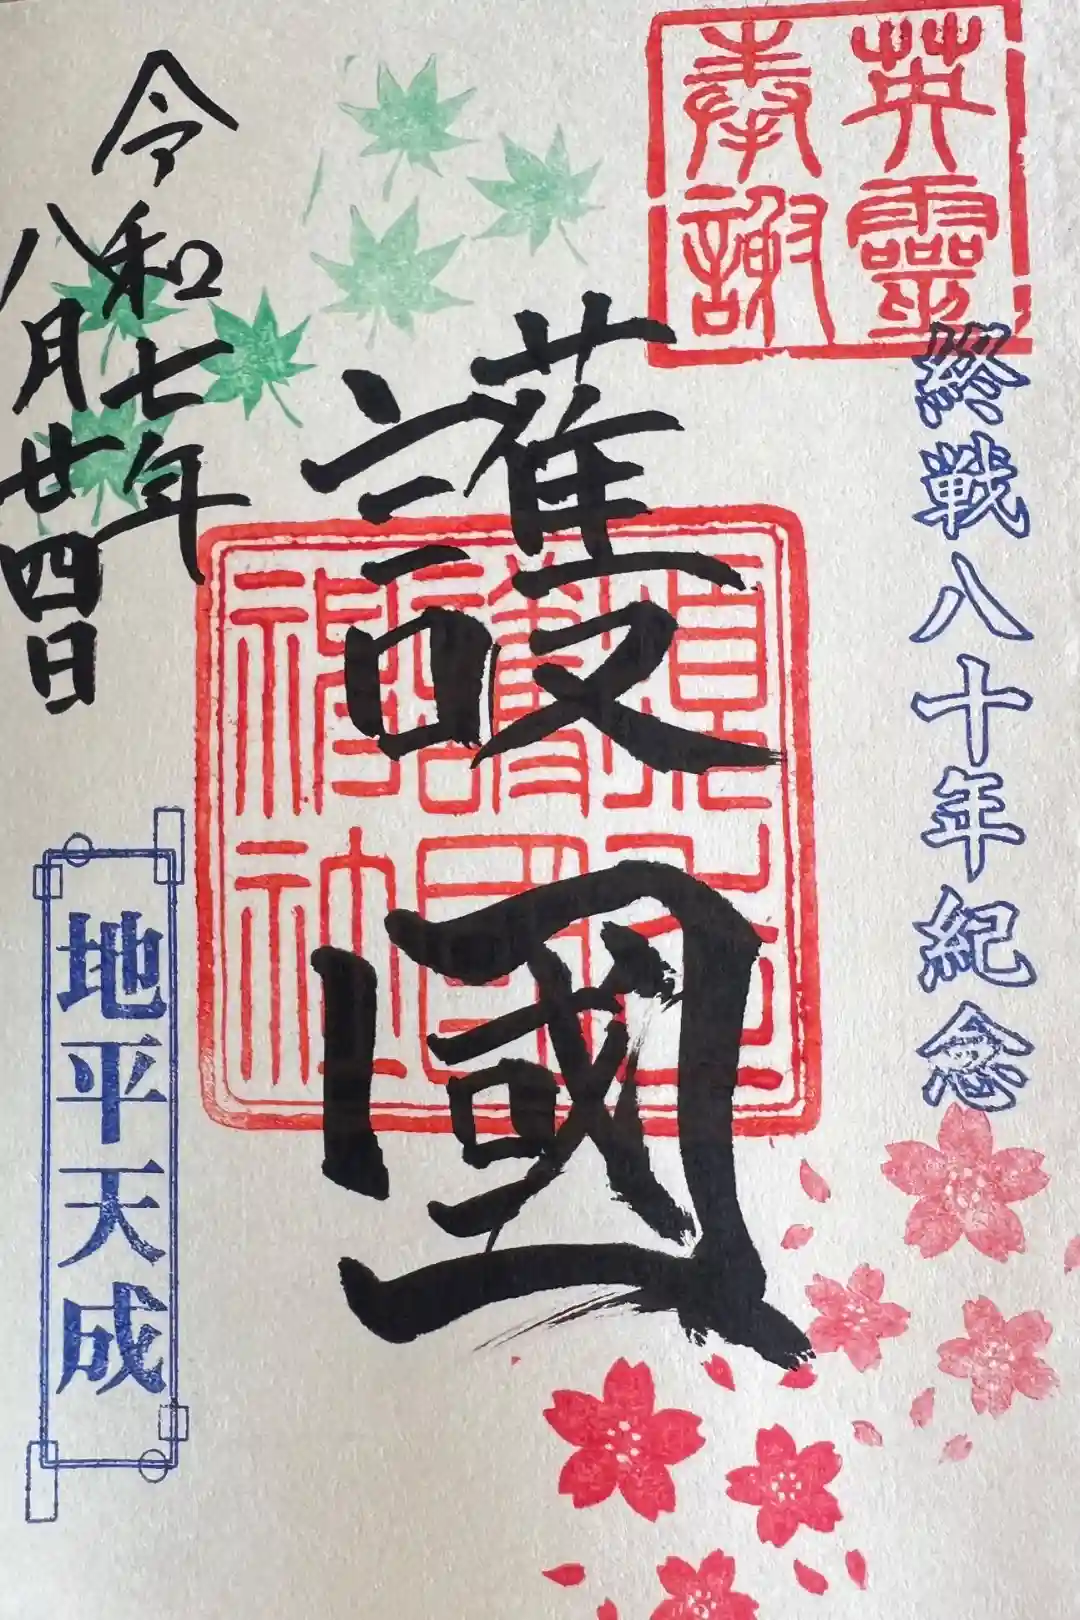 英靈
奉謝
終戦八十年紀念
護國
護國
神社
令和七年
八月廿四日
地平天成